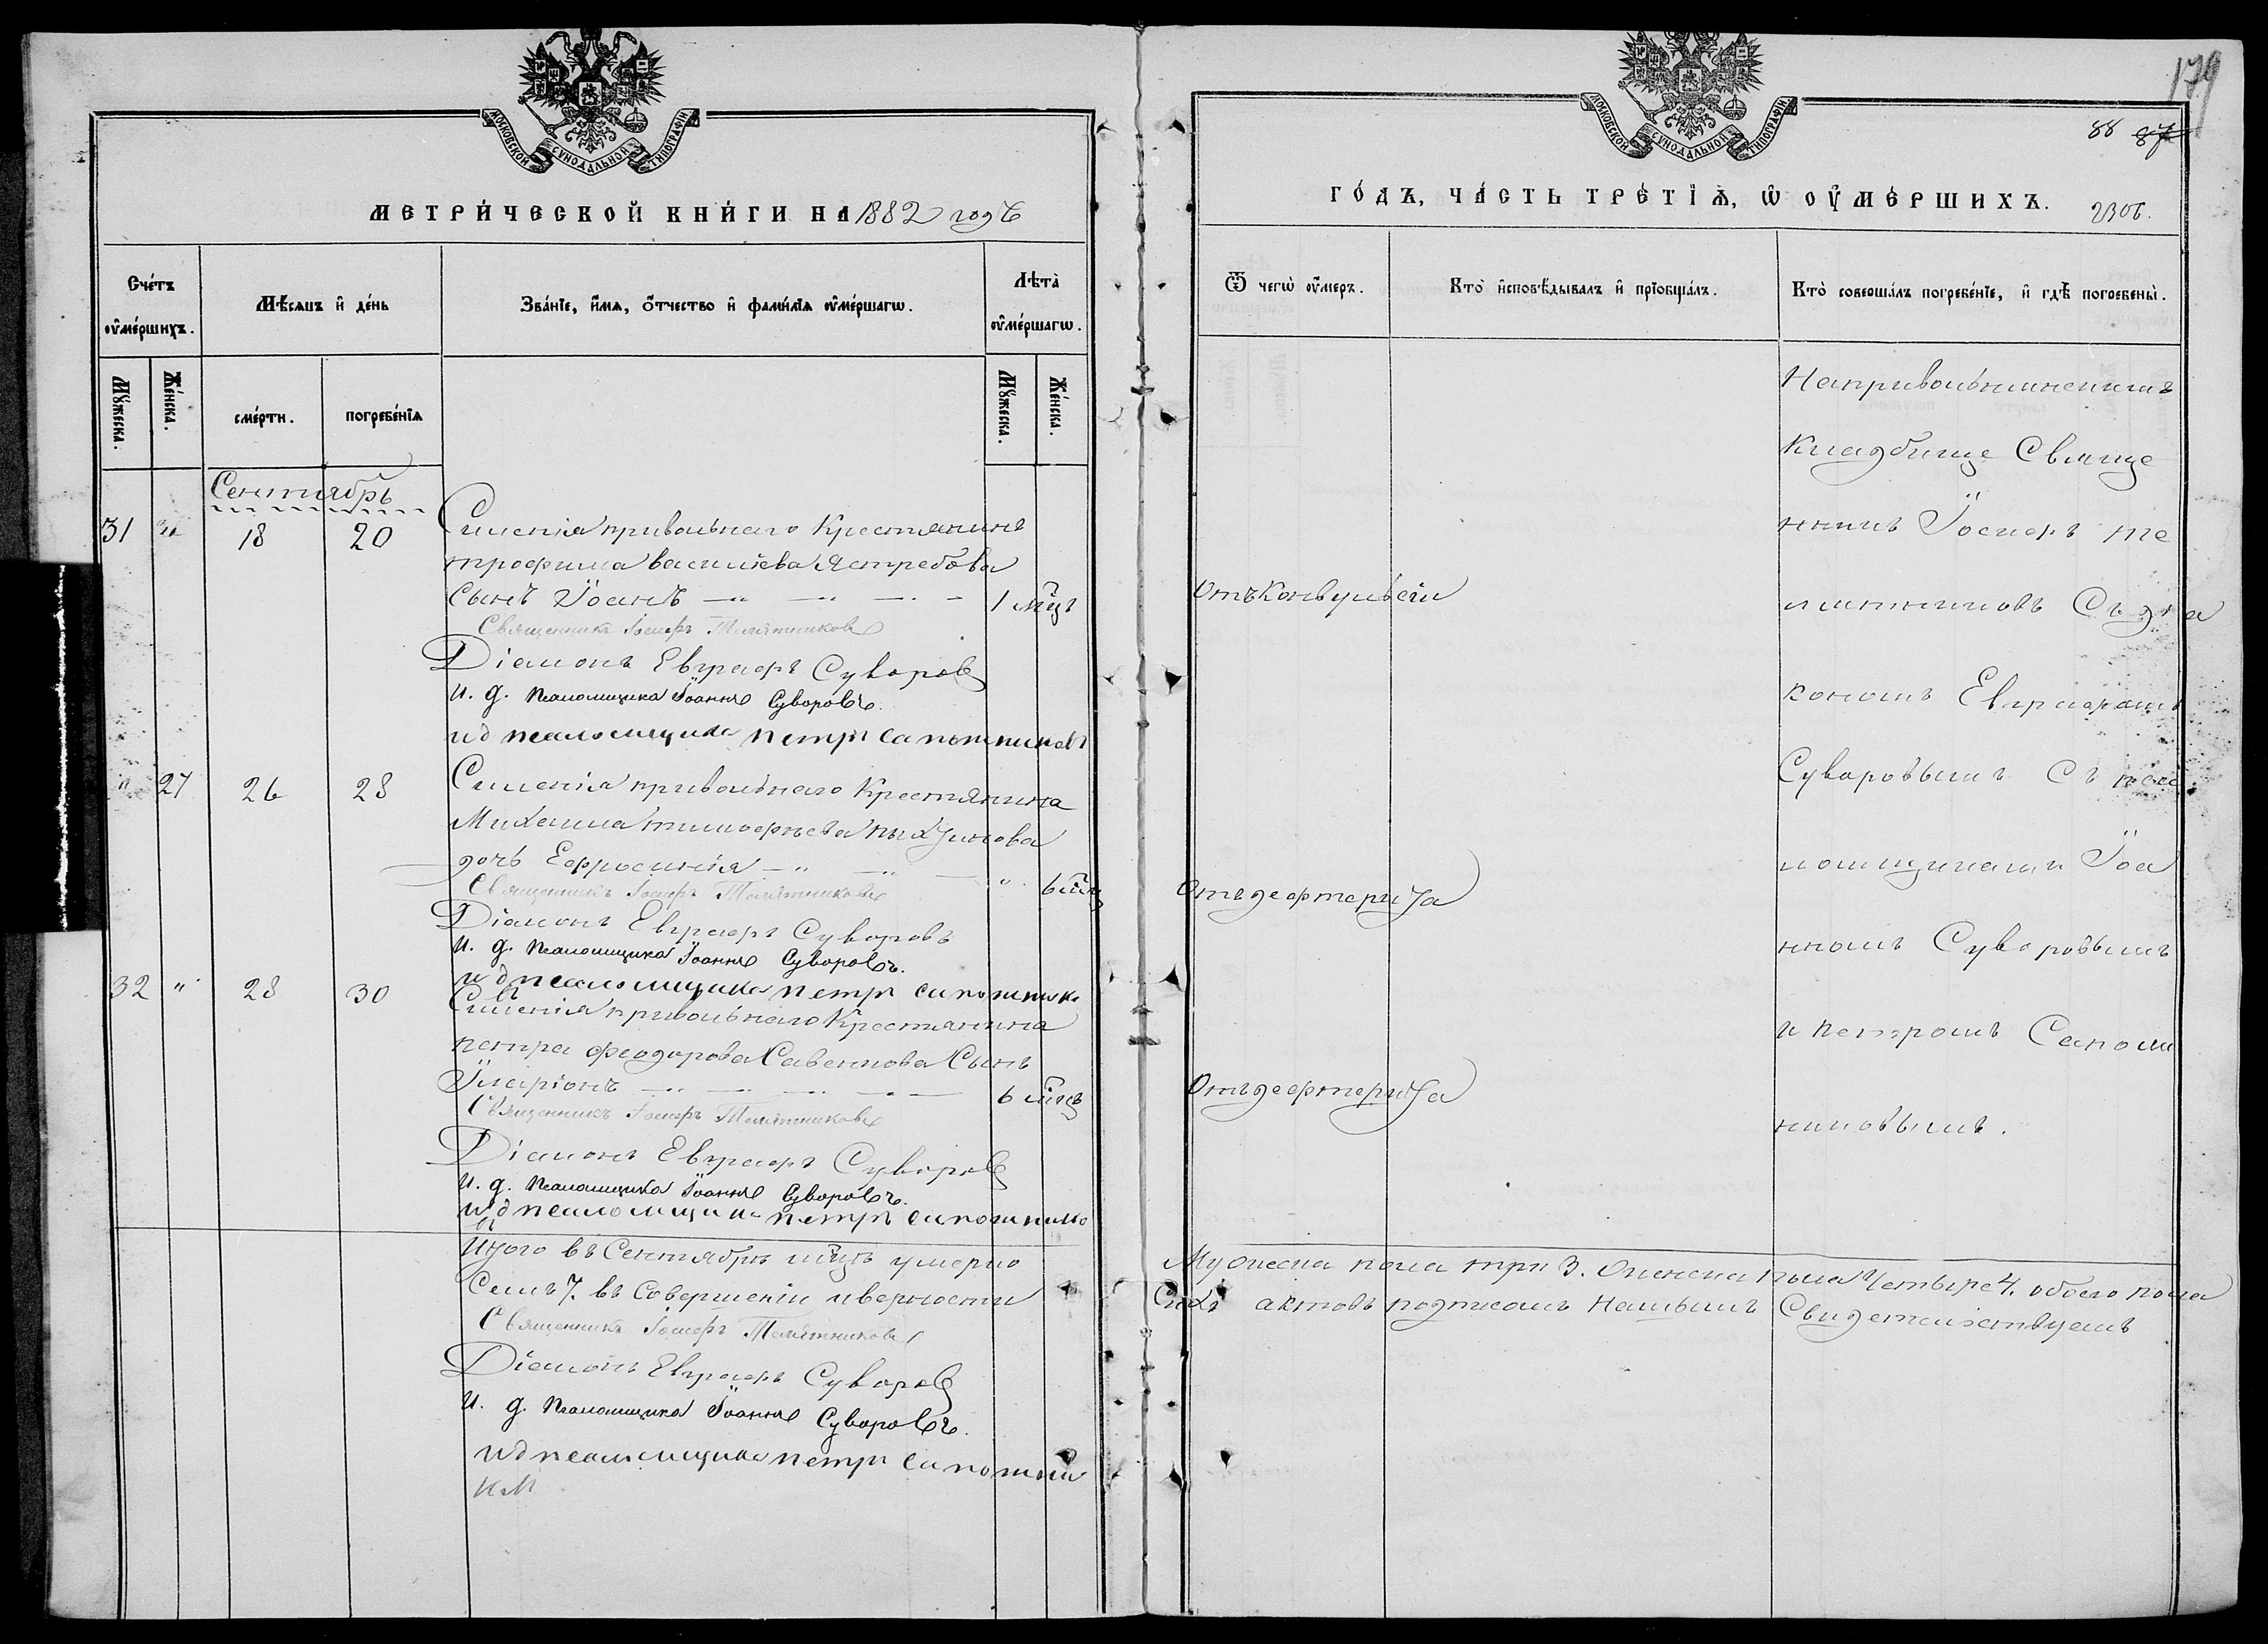 МОСКОВСКОЙ СѴНОДАЛЬНОЙ ТИПОГРАФІИ
МЕТРИ́ЧЕСКОЙ КНИ́ГИ НА 1882 годъ
Сче́тъ оу҆ме́ршихъ.
Мѣ́сяцъ и҆ де́нь
Зва́нїе, и҆́мѧ, ѻ҆́тчество и҆ фами́лїѧ оу҆ме́ршагѡ.
Лѣта̀ оу҆ме́ршагѡ.
Мꙋ́жеска.
Же́нска.
сме́рти.
погребе́нїѧ
Мꙋ́жеска.
Же́нска.
Сентябрь
31 18 20 Селенія привольнаго Крестянинъ
трофима васильева Ястребова
Сынъ Їоанъ 1 мц҃ъ
Священникъ Іосифъ Телятниковъ
Діаконъ Евграфъ Суворовъ
И. д. Псаломщика Їоаннъ Суворовъ.
ид псаломщика петръ сапожниковъ
" 27 26 28 Селенія привольнаго Крестянина
Михаила тимофѣева
дочь Ефросинія " 6 мц҃
Священникъ Іосифъ Телятниковъ
Діаконъ Евграфъ Суворовъ
И. д. Псаломщика Їоаннъ Суворовъ.
ид псаломщика петръ сапожнико
въ
32 " 28 30 Селенія привольнаго Крестянина
петра феодорова Савенкова Сынъ
Їларіонъ 6 мц҃ъ
Священникъ Іосифъ Телятниковъ
Діаконъ Евграфъ Суворовъ
И. д. Псаломщика Їоаннъ Суворовъ.
ид псаломщика петръ сапожнико
въ
Итого въ Сентябрѣ мц҃ѣ умерло
Семъ 7. въ Совершеніи и верности
Священникъ Іосифъ Телятниковъ
Діаконъ Евграфъ Суворовъ
И. д. Псаломщика Їоаннъ Суворовъ.
ид псаломщика петръ сапожни
ковъ
179
88 87
МОСКОВСКОЙ СѴНОДАЛЬНОЙ ТИПОГРАФІИ
ГО́ДЪ, ЧА́СТЬ ТРЕ́ТЇѦ, Ѡ҆ ОУ҆МЕ́РШИХЪ.
2306.
Ѿ чегѡ̀ оу҆́меръ.
Кто̀ и҆сповѣ́дывалъ и҆ прїобща́лъ.
Кто̀ соверша́лъ погребе́нїе, и҆ гдѣ̀ погребены̀.
На привольнинскомъ
кладбище Свяще
нникъ Їосифъ те
лятниковъ Съ диа
кономъ Евграфомъ
Суворовымъ Съ псао
ломщиками Їоа
нномъ Суворовымъ
и петромъ Сапож
никовымъ.
Отъ Конвульсіи
Отъ дефтерита
Отъ дефтерита
Мужеска пола три 3. женска пола Четыре 4. обоего пола
Сихъ актовъ подписомъ нашымъ Свидетельствуемъ